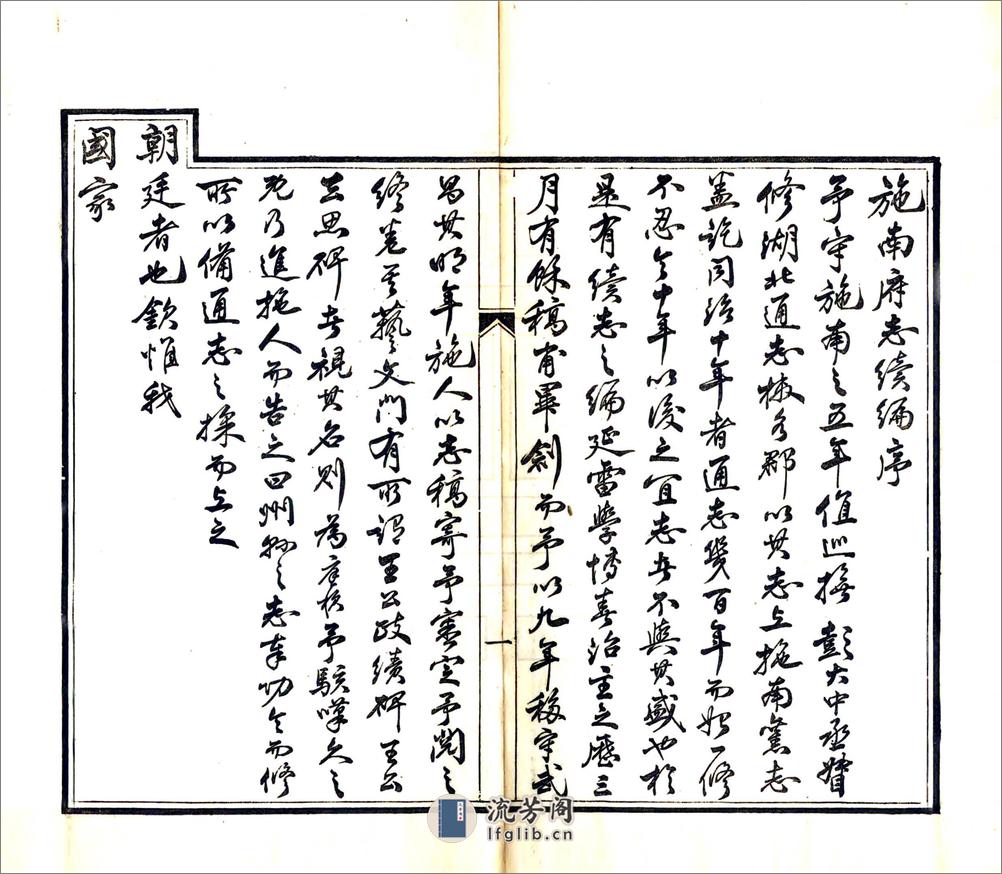 施南府志續編序
予守施南之五年值巡撫 彭大中丞督
修湖北通志檄各郡以其志上施南舊志
蓋訖同治十年者通志幾百年而始一修
不忍令十年以後之宜志者不與其盛也於
是有續志之編延雷學博春治主之歷三
月有餘稿甫畢劍而予以九年移守武
昌其明年施人以志稿寄予審定予閱之
終卷其藝文門有所謂王公政績碑王公
去思碑者視其名則為庭楨予駭嘆久之
既乃進施人而告之曰州縣之志奉功令而修
所以備通志之採而上之
朝廷者也欽惟我
國家
一
流芳阁
lfglib.cn